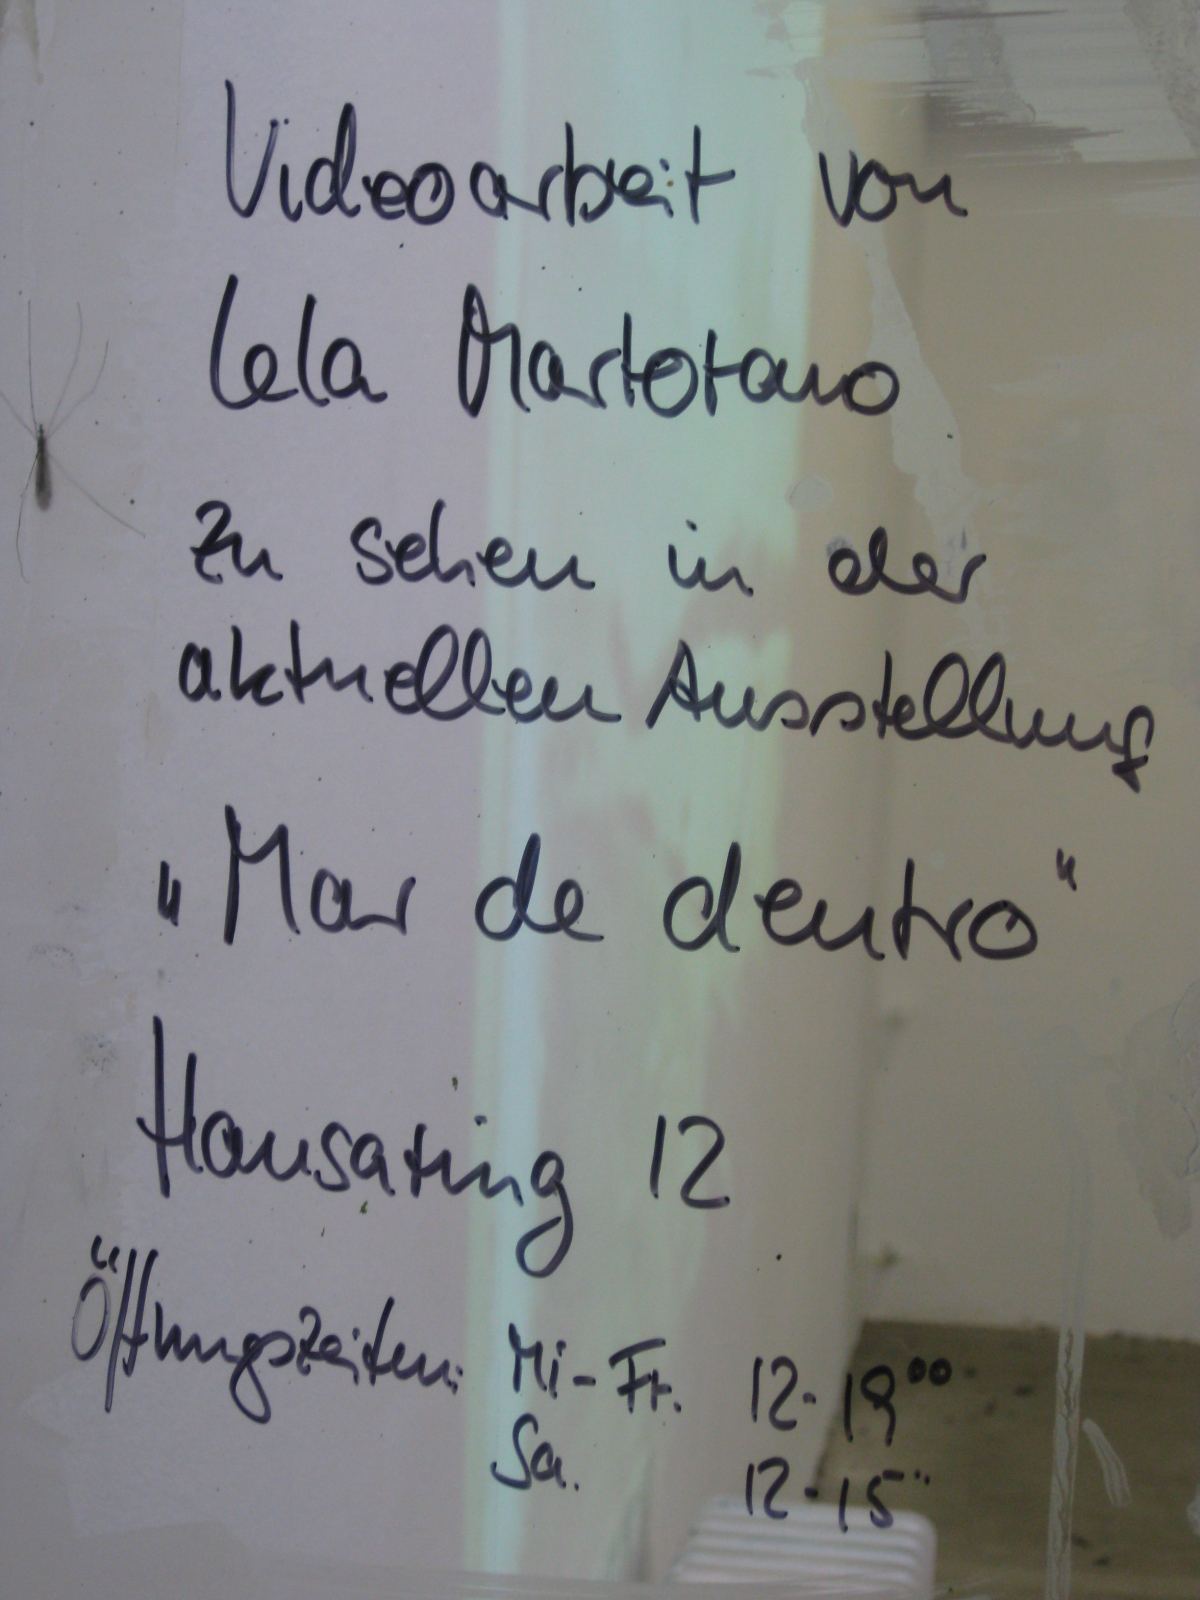 Videoarbeit von
Lela Martorano
zu sehen in der
aktuellen Ausstellung
„Mar de dentro“
Hansaring 12
Öffnungszeiten: Mi-Fr. 12-19⁰⁰
Sa. 12-15